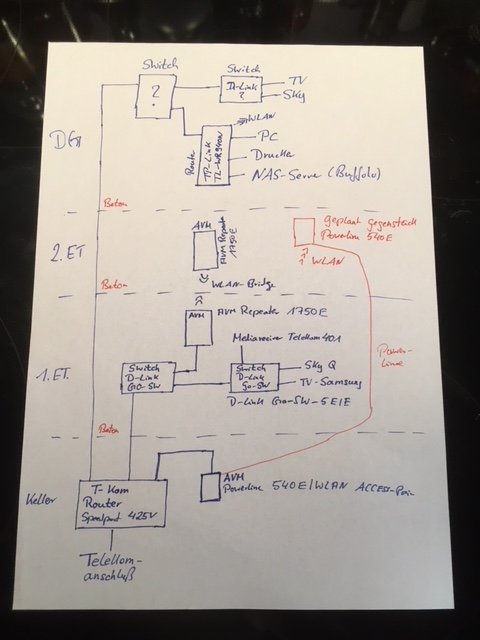 Switch
?
Switch
D-Link
?
TV
Sky
DG
Router
TP-Link
TL-WR940N
WLAN
PC
Drucker
NAS-Server (Buffolo)
Beton
2. ET
AVM
AVM Repeater
1750E
geplant gegenstelle
Powerline 540E
WLAN
WLAN-Bridge
Beton
AVM
AVM Repeater 1750E
Mediareceiver Telekom 401
1. ET.
Switch
D-Link
GO-SW
Switch
D-Link
Go-SW
Sky Q
TV-Samsung
D-Link Go-SW-5E/E
Power-
Linie
Beton
Keller
T-Kom
Router
Speedport
AVM
Powerline 540E/WLAN ACCESS-Poin
Telekom-
anschluß